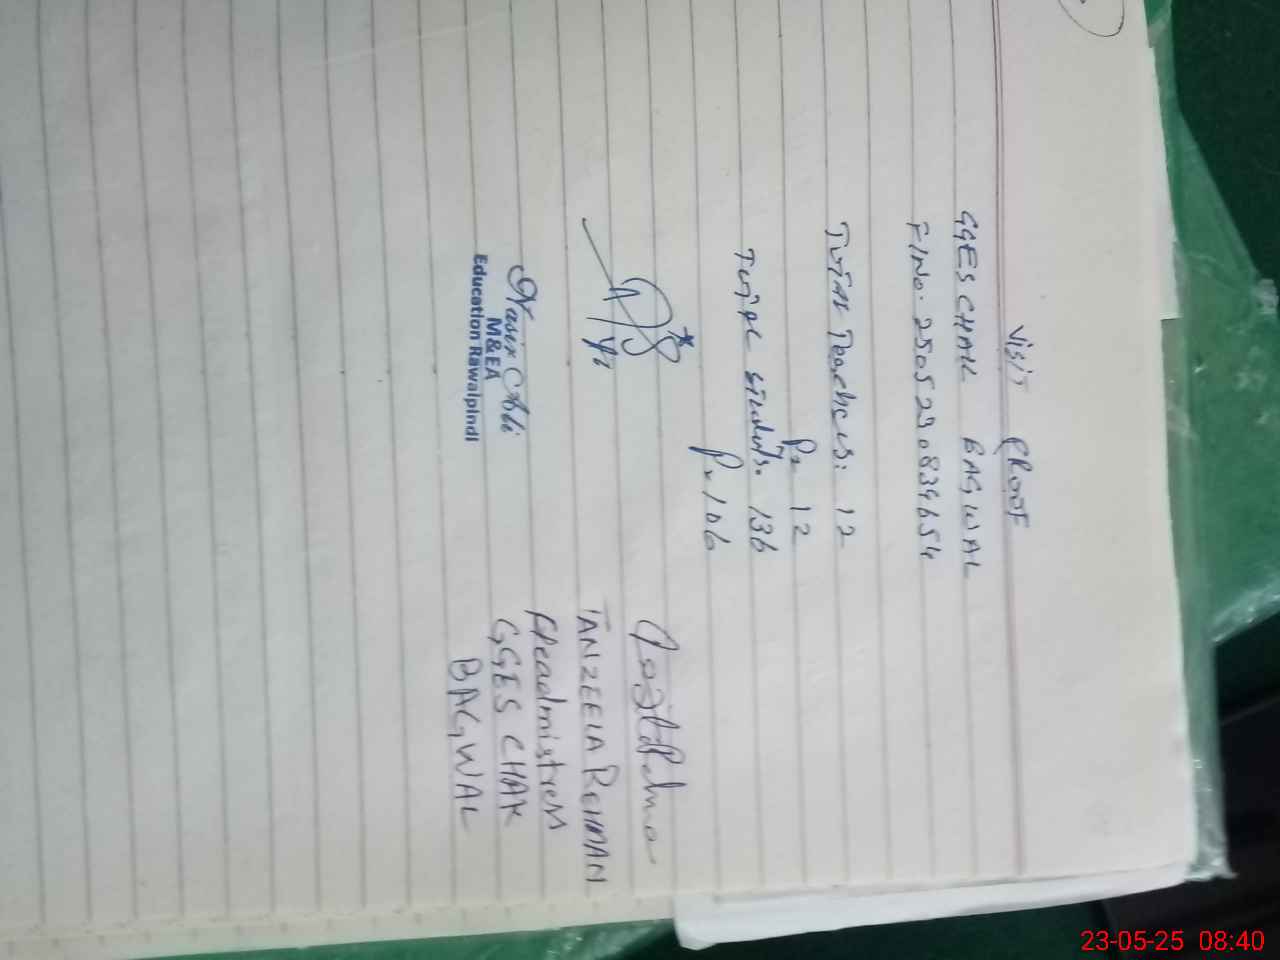 Visit PROOF
GGES CHAK BAGWAL
F/No. 2505230839654
Total Teachers: 12
P= 12
Total students. 136
P= 106
TANZEELA REHMAN
Headmistress
GGES CHAK
BAGWAL
Nasir Ali
M&EA
Education Rawalpindi
23-05-25 08:40